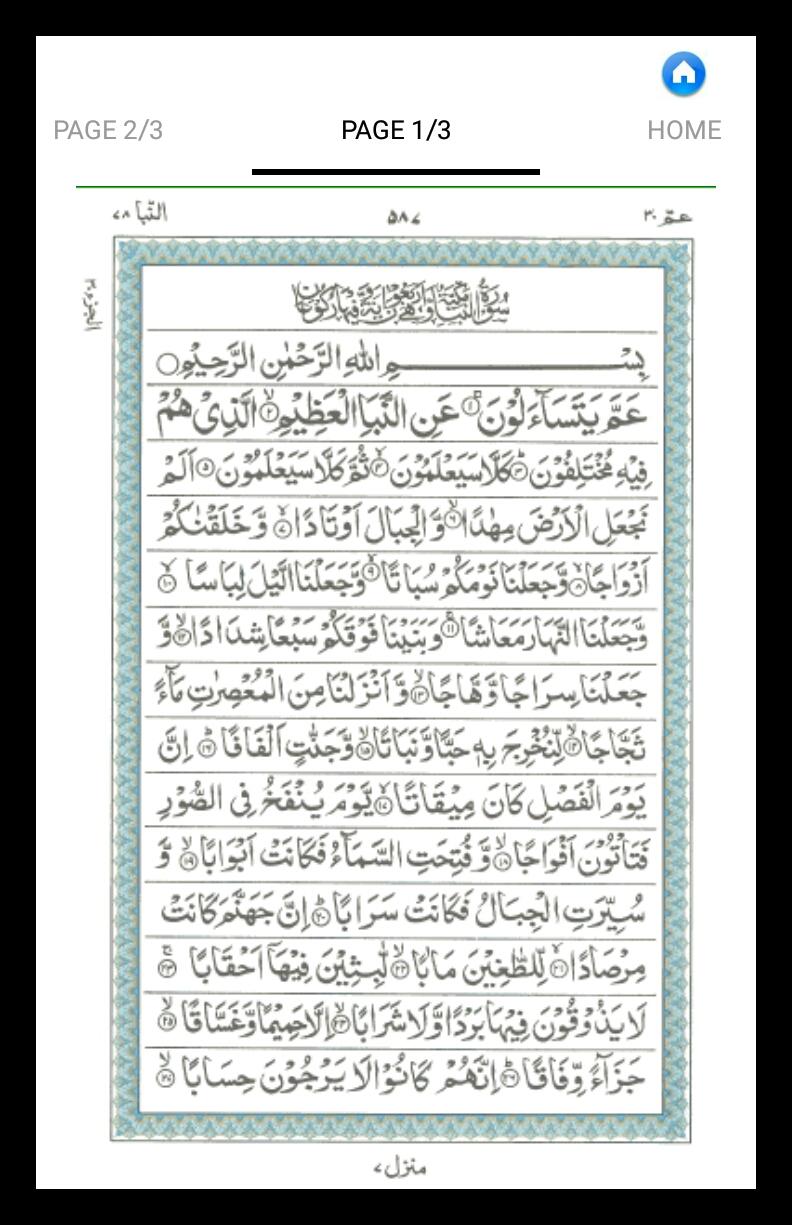 PAGE 2/3 PAGE 1/3 HOME
النبا ۷۸ ۵۸۷ عمّ ۳۰
الجزء ۳۰
سُوْرَةُ النَّبَاِ مَكِّيَّةٌ وَّهِيَ اَرْبَعُوْنَ اٰيَةً وَّفِيْهَا رُكُوْعَانِ
بِسْــــــــــــمِ اللّٰهِ الرَّحْمٰنِ الرَّحِيْمِ۝
عَمَّ يَتَسَآءَلُوْنَ ۝۱ۚ عَنِ النَّبَاِ الْعَظِيْمِ ۝۲ۙ الَّذِىْ هُمْ
فِيْهِ مُخْتَلِفُوْنَ ۝۳ؕ كَلَّا سَيَعْلَمُوْنَ ۝۴ۙ ثُمَّ كَلَّا سَيَعْلَمُوْنَ ۝۵ اَلَمْ
نَجْعَلِ الْاَرْضَ مِهٰدًا ۝۶ۙ وَّالْجِبَالَ اَوْتَادًا ۝۷ۙ وَّخَلَقْنٰكُمْ
اَزْوَاجًا ۝۸ۙ وَّجَعَلْنَا نَوْمَكُمْ سُبَاتًا ۝۹ۙ وَّجَعَلْنَا الَّيْلَ لِبَاسًا ۝۱۰ۙ
وَّجَعَلْنَا النَّهَارَ مَعَاشًا ۝۱۱ وَبَنَيْنَا فَوْقَكُمْ سَبْعًا شِدَادًا ۝۱۲ۙ وَّ
جَعَلْنَا سِرَاجًا وَّهَّاجًا ۝۱۳ۙ وَّاَنْزَلْنَا مِنَ الْمُعْصِرٰتِ مَآءً
ثَجَّاجًا ۝۱۴ۙ لِّنُخْرِجَ بِهٖ حَبًّا وَّنَبَاتًا ۝۱۵ۙ وَّجَنّٰتٍ اَلْفَافًا ۝۱۶ؕ اِنَّ
يَوْمَ الْفَصْلِ كَانَ مِيْقَاتًا ۝۱۷ۙ يَّوْمَ يُنْفَخُ فِى الصُّوْرِ
فَتَاْتُوْنَ اَفْوَاجًا ۝۱۸ۙ وَّفُتِحَتِ السَّمَآءُ فَكَانَتْ اَبْوَابًا ۝۱۹ۙ وَّ
سُيِّرَتِ الْجِبَالُ فَكَانَتْ سَرَابًا ۝۲۰ؕ اِنَّ جَهَنَّمَ كَانَتْ
مِرْصَادًا ۝۲۱ۙ لِّلطّٰغِيْنَ مَاٰبًا ۝۲۲ۙ لّٰبِثِيْنَ فِيْهَآ اَحْقَابًا ۝۲۳ۚ
لَا يَذُوْقُوْنَ فِيْهَا بَرْدًا وَّلَا شَرَابًا ۝۲۴ۙ اِلَّا حَمِيْمًا وَّغَسَّاقًا ۝۲۵ۙ
جَزَآءً وِّفَاقًا ۝۲۶ؕ اِنَّهُمْ كَانُوْا لَا يَرْجُوْنَ حِسَابًا ۝۲۷ۙ
منزل ۷